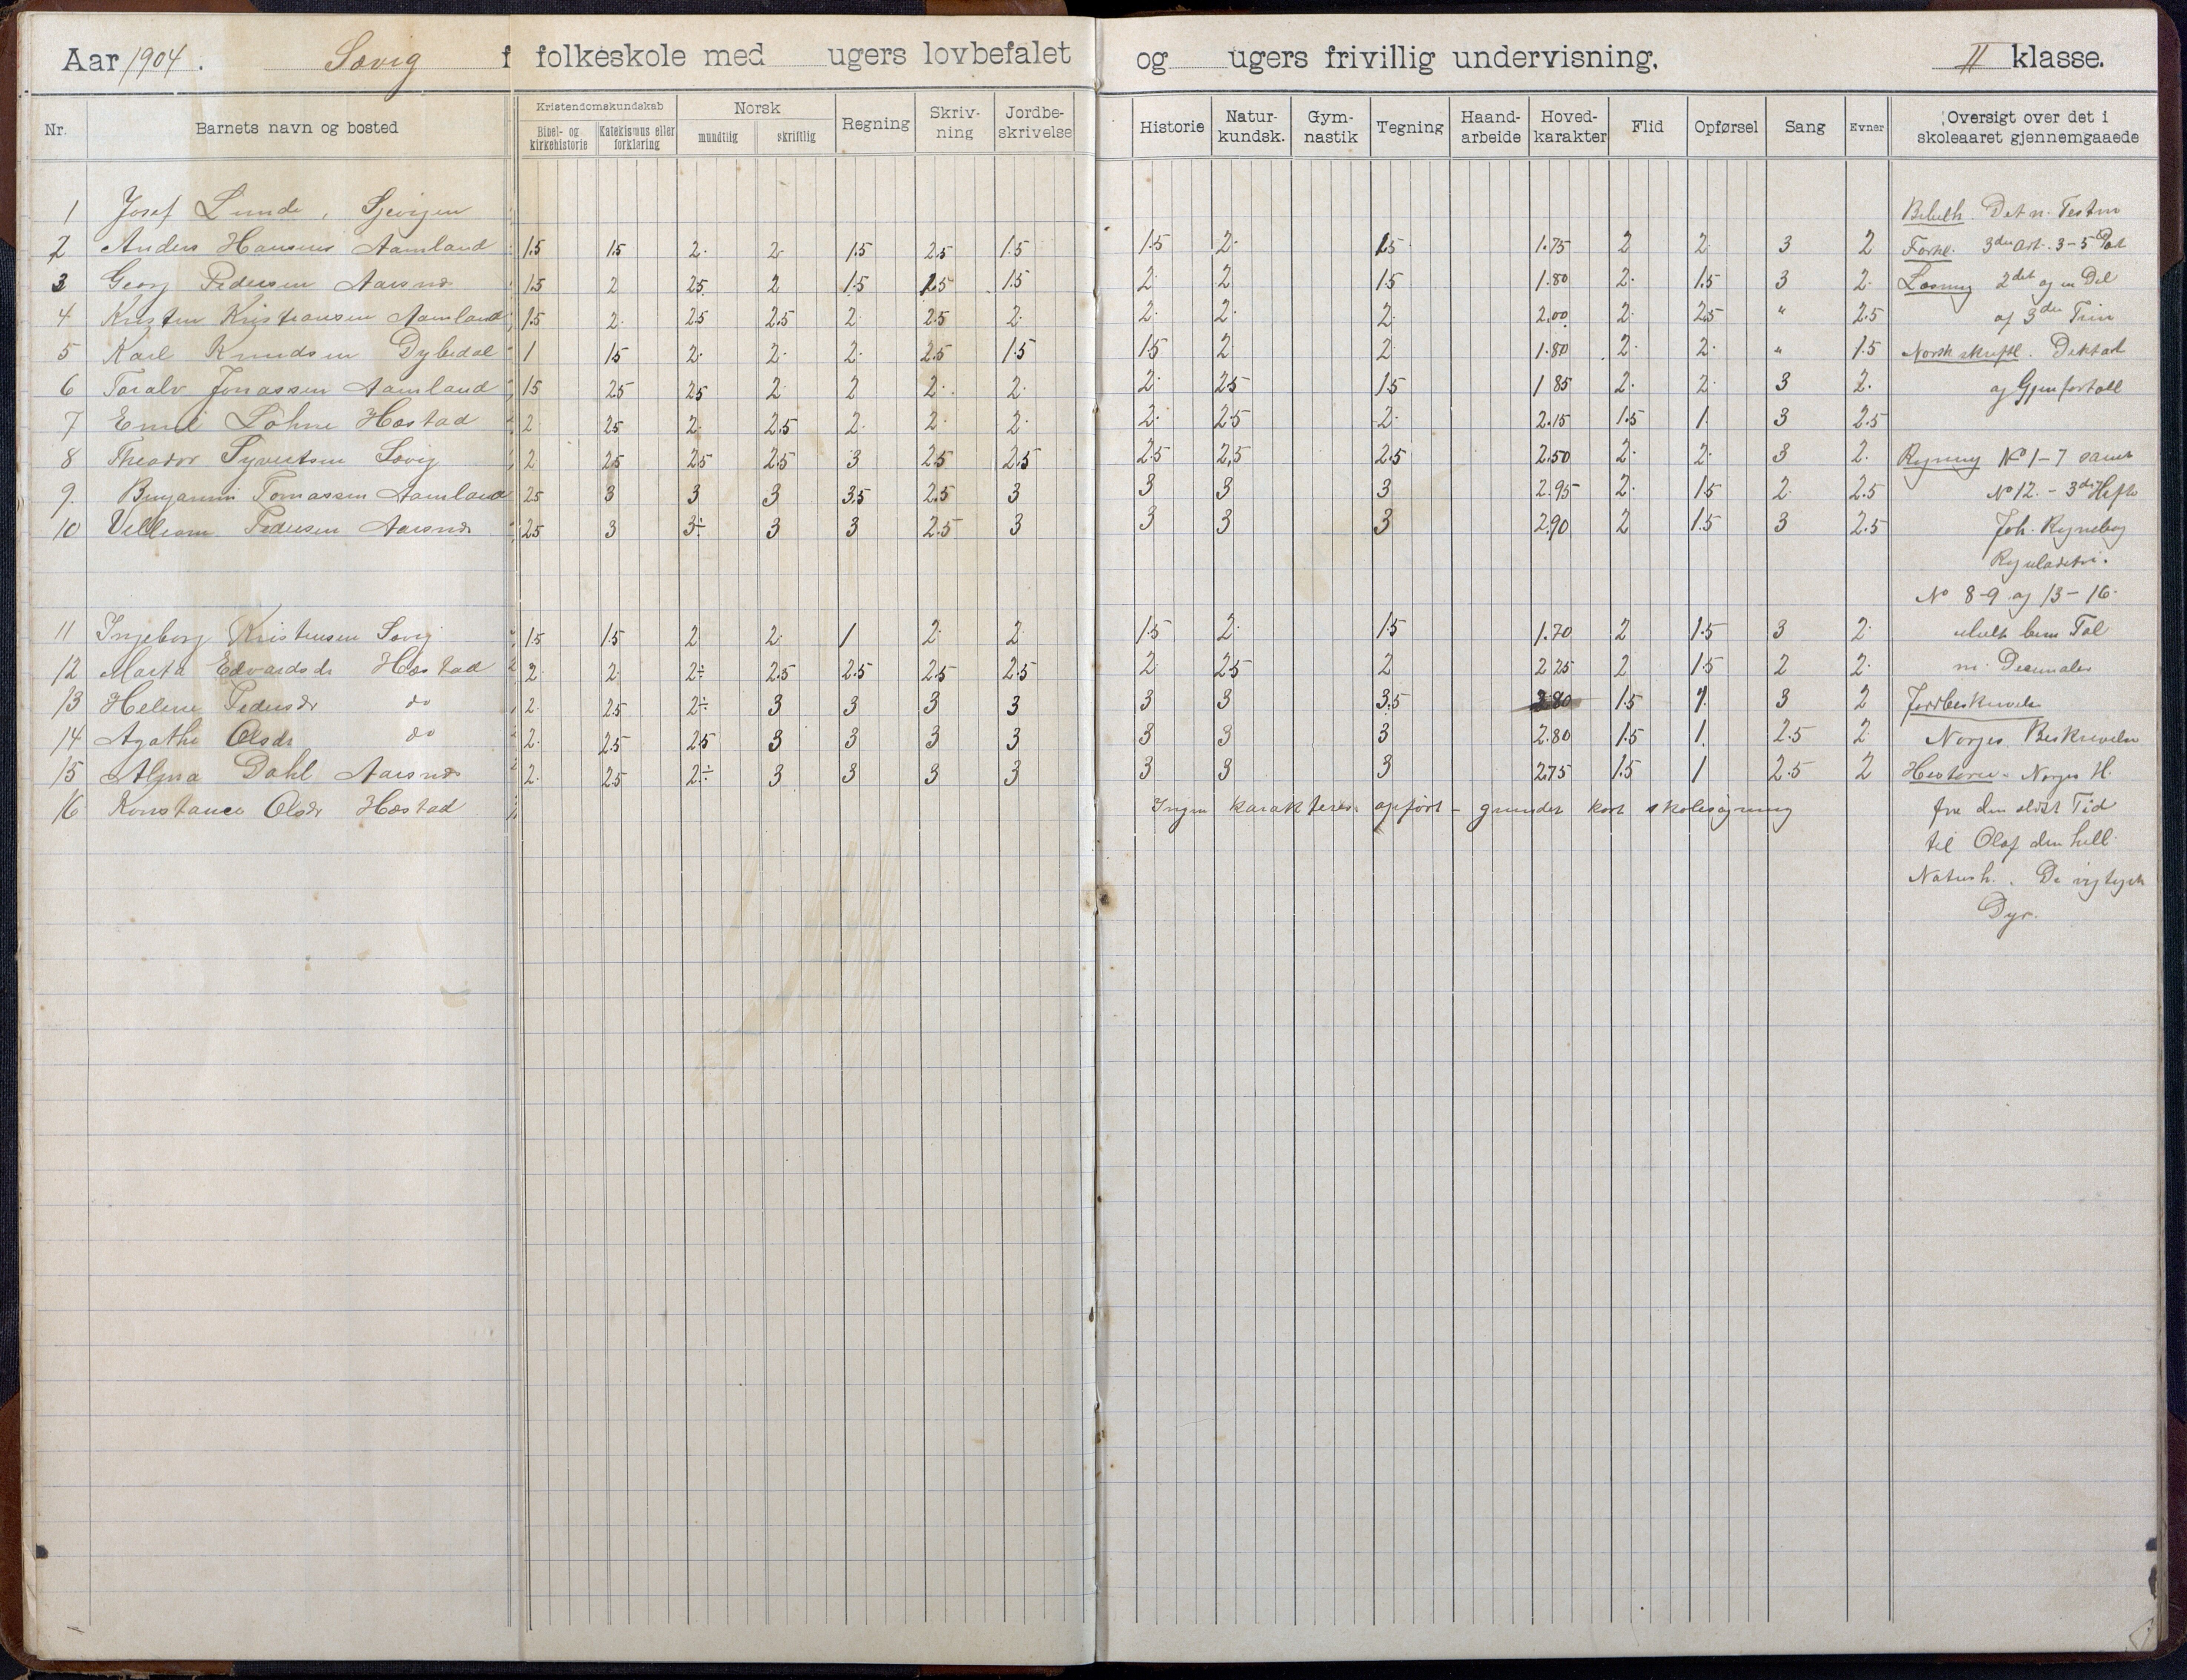 Aar 1904. Søvig f folkeskole med ugers lovbefalet og ugers frivillig undervisning. II klasse.
Nr. Barnets navn og bosted Kristendomskundskab Bibel- og kirkehistorie Katekismus eller forklaring Norsk mundtlig skriftlig Regning Skriv-ning Jordbe-skrivelse Historie Natur-kundsk. Gym-nastik Tegning Haand-arbeide Hoved-karakter Flid Opførsel Sang Evner Oversigt over det i skoleaaret gjennemgaaede
1 Josef Lunde, Bibelh. Det n. Testm
2 Anders Hansen Aamland 1.5 1.5 2. 2. 1.5 2.5 1.5 1.5 2. 1.5 1.75 2 2. 3 2 Forkl. 3die Art. 3-5 Part
3 Georg Pedersen Aarsnes 1.5 2 2.5 2 1.5 1.5 1.5 2. 2 1.5 1.80 2. 1.5 3 2. Læsning 2det og en Del
4 Kristen Kristiansen Aamland 1.5 2. 2.5 2.5 2. 2.5 2. 2. 2. 2. 2.00 2. 2.5 " 2.5 af 3die Trin
5 Karl Knudsen Dybedal 1 1.5 2. 2. 2. 2.5 1.5 1.5 2. 2. 1.80 2. 2. " 1.5 Norsk skriftl. Diktat
6 Toralv Jonassen Aamland 1.5 2.5 2.5 2. 2 2. 2. 2. 2.5 1.5 1.85 2. 2. 3 2. og Gjenfortæll
7 Emil Löhne Hæstad 2 2.5 2. 2.5 2. 2. 2. 2. 2.5 2. 2.15 1.5 1. 3 2.5
8 Theodor Syvertsen Søvig 2 2.5 2.5 2.5 3 2.5 2.5 2.5 2.5 2.5 2.50 2. 2. 3 2. Regning No 1-7 samt
9. Benjamin Tomassen Aamland 2.5 3 3 3 3.5 2.5 3 3 3 3 2.95 2. 1.5 2. 2.5 No 12. - 3die Hefte
10 Velliam Pedersen Aarsnes 2.5 3 3÷ 3 3 2.5 3 3 3 3 2.90 2 1.5 3 2.5 Joh. Regnebog
Reguladetri.
No 8-9 og 13-16.
11 Ingeborg Kristensen Søvig 1.5 1.5 2 2. 1 2. 2. 1.5 2. 1.5 1.70 2 1.5 3 2. Tal
12 Marta Edvardsdr Hæstad 2. 2. 2÷ 2.5 2.5 2.5 2.5 2. 2.5 2 2.25 2 1.5 2 2. m. Decimaler
13 Helene Pedersdr do 2. 2.5 2÷ 3 3 3 3 3 3 3.5 2.80 1.5 1. 3 2 Jordbeskrivelse
14 Agathe Olsdr do 2. 2.5 2.5 3 3 3 3 3 3 3 2.80 1.5 1. 2.5 2. Norges Beskrivelse
15 Alma Dahl Aarsnes 2. 2.5 2.÷ 3 3 3 3 3 3 3 2.75 1.5 1 2.5 2 Historie. Norges H.
16 Konstance Olsdr Hæstad Ingen karakterer opført - grundet kort skolesøgning fra den ældste Tid
til Olaf den hell.
Naturh. De vigtigste
Dyr.